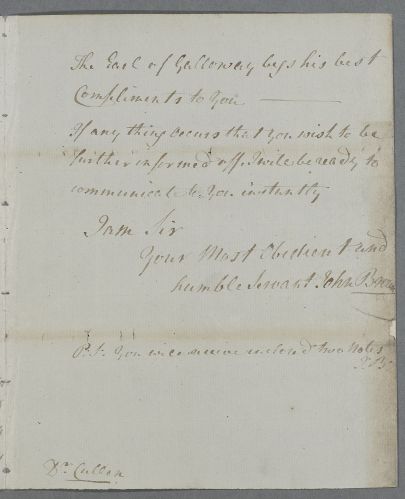 The Earl of Galloway begs his best
Compliments to You
If any thing occurs that You wish to be
further informed off, I will be ready to
communicate to You instantly
I am Sir
Your Most Obedient and
humble Servant John Brown
P.S. You will receive inclosed two Notes
J.B.
Dr Cullen